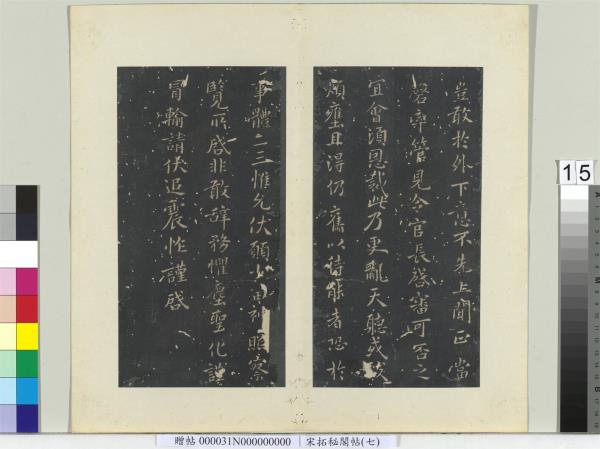 豈敢於外下意不先上聞正當
罄率管見令官長啓審可否之
宜會須恩裁此乃更亂天聽或
煩壅且得仍舊以待能者恐於
事體二三惟允伏願少神照察
覽所啓非敢辞務懼塵聖化謹
冒輸請伏追震悚謹啓
15
贈帖 000031N000000000 宋拓秘閣帖(七)